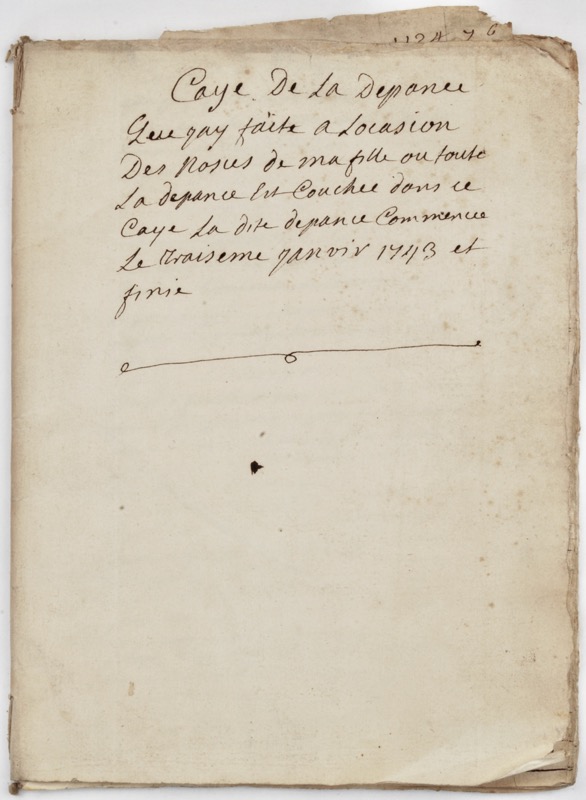 1124 7 6
Caye De La Depance
Que jay faite a Locasion
Des Noses de ma fille ou toute
La depance Est Couchée dans ce
Caye La dite depance Commence
Le Traiseme janvir 1743 et
finie